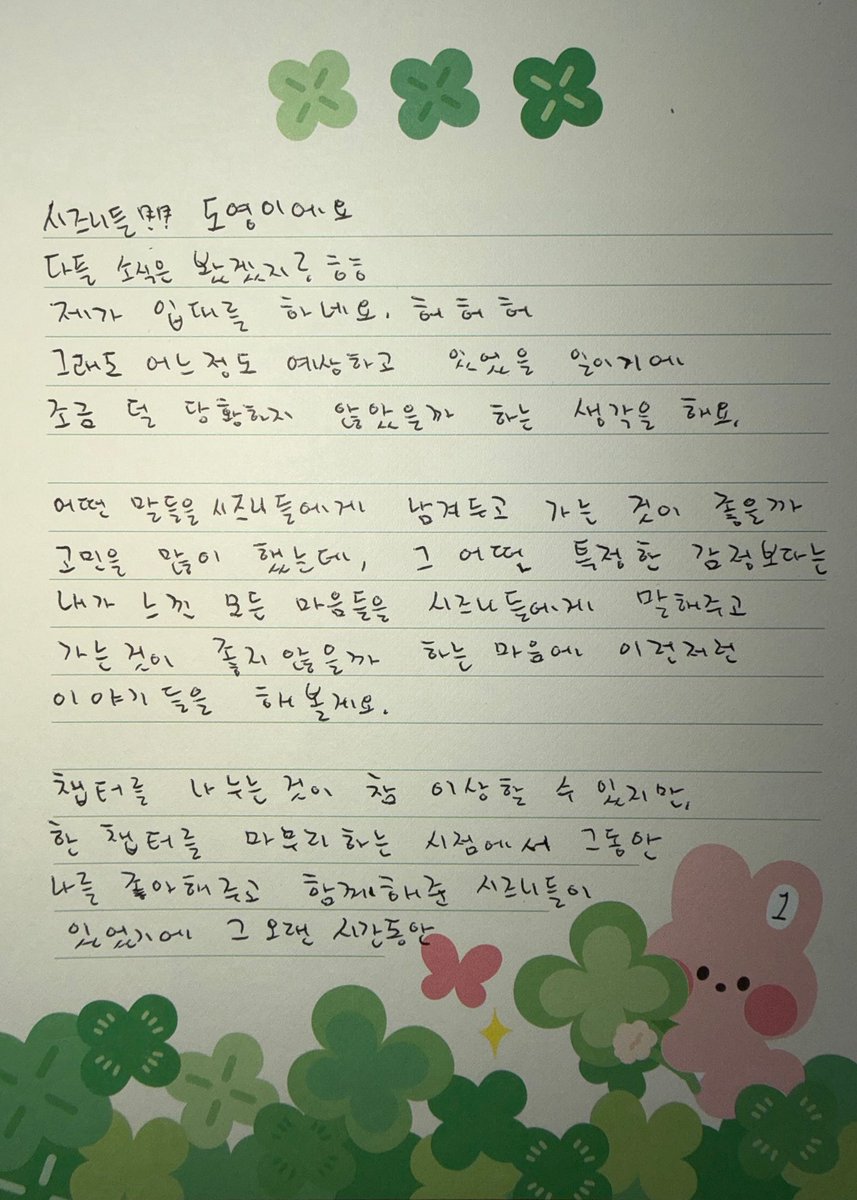 시즈니들!?!? 도영이에요
다들 소식은 봤겠지롱 ㅎㅎ
제가 입대를 하네요. 허허허
그래도 어느정도 예상하고 있었을 일이기에
조금 덜 당황하지 않았을까 하는 생각을 해요.
어떤 말들을 시즈니들에게 남겨두고 가는 것이 좋을까
고민을 많이 했는데, 그 어떤 특정한 감정보다는
내가 느낀 모든 마음들을 시즈니들에게 말해주고
가는 것이 좋지 않을까 하는 마음에 이런저런
이야기들을 해 볼게요.
챕터를 나누는 것이 참 이상할 수 있지만,
한 챕터를 마무리하는 시점에서 그동안
나를 좋아해주고 함께해준 시즈니들이
있었기에 그 오랜 시간동안
1